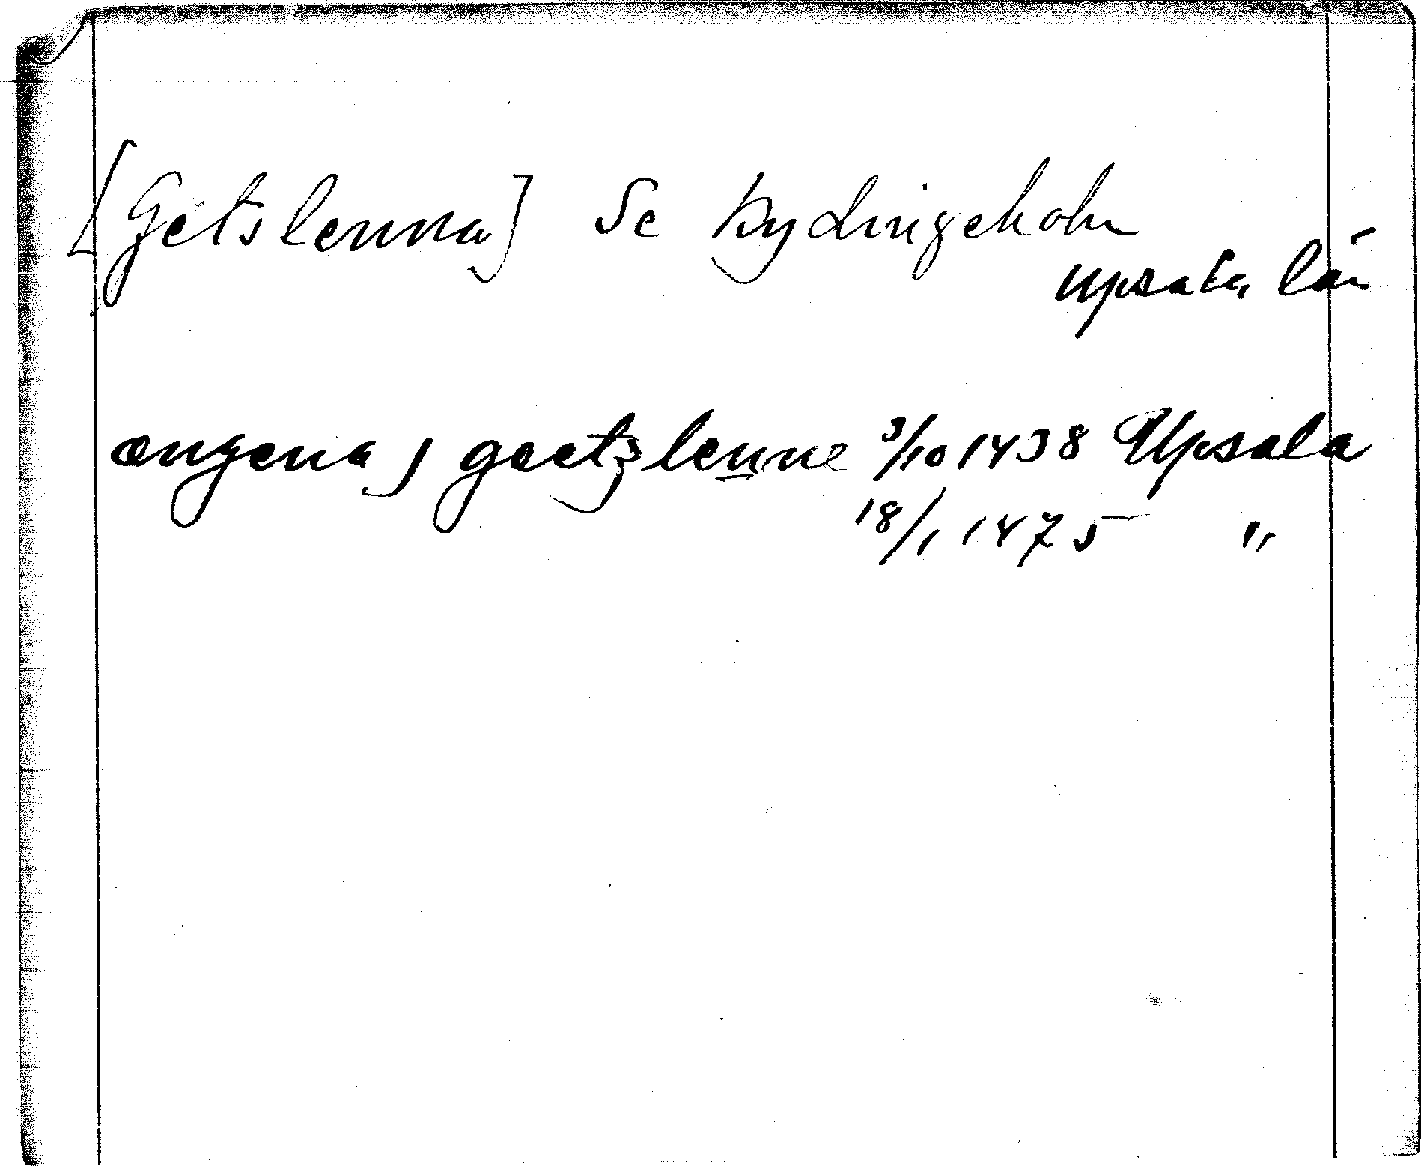 [Getslenna] Se Kydingeholm
Upsala län
ængena j geetzslenne 3/10 1438 Upsala
18/1 1475 "